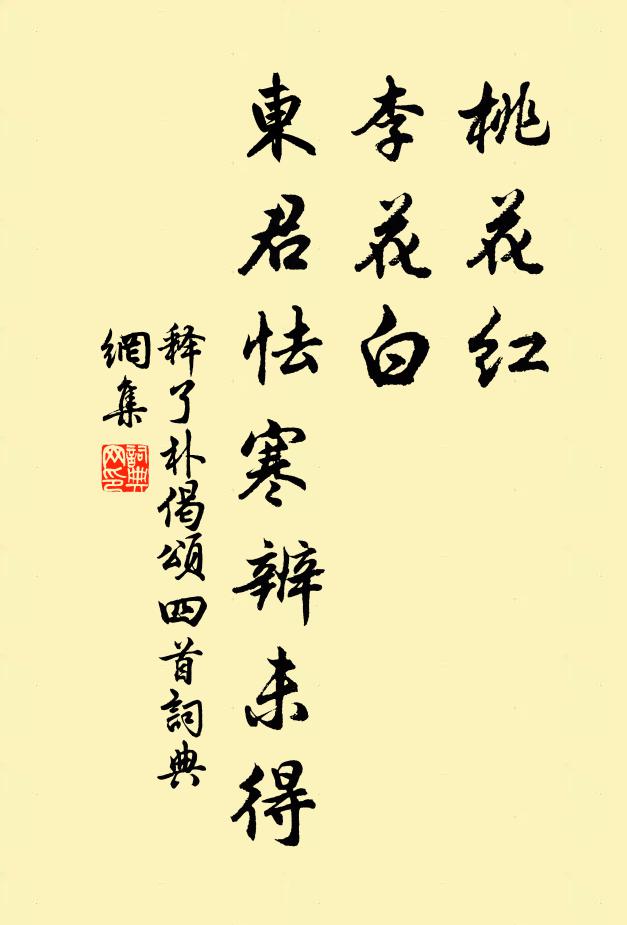 桃花红
李花白
東君怯寒辨未得
释了朴偈頌四首詞典
網集
詞典網印